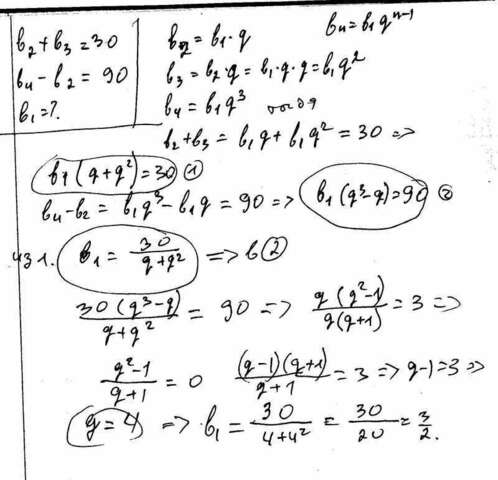 b₂ + b₃ = 30
b₄ - b₂ = 90
b₁ = ?
b₂ = b₁ · q
bₙ = b₁qⁿ⁻¹
b₃ = b₂ · q = b₁ · q · q = b₁q²
b₄ = b₁q³
b₂ + b₃ = b₁q + b₁q² = 30 =>
b₁(q + q²) = 30 ①
b₄ - b₂ = b₁q³ - b₁q = 90 => b₁(q³ - q) = 90 ②
из 1. b₁ = 30/(q + q²) => в ②
30(q³ - q)/(q + q²) = 90 => q(q² - 1)/(q(q + 1)) = 3 =>
(q² - 1)/(q + 1) = 0 (q - 1)(q + 1)/(q + 1) = 3 => q - 1 = 3 =>
q = 4 => b₁ = 30/(4 + 4²) = 30/20 = 3/2.